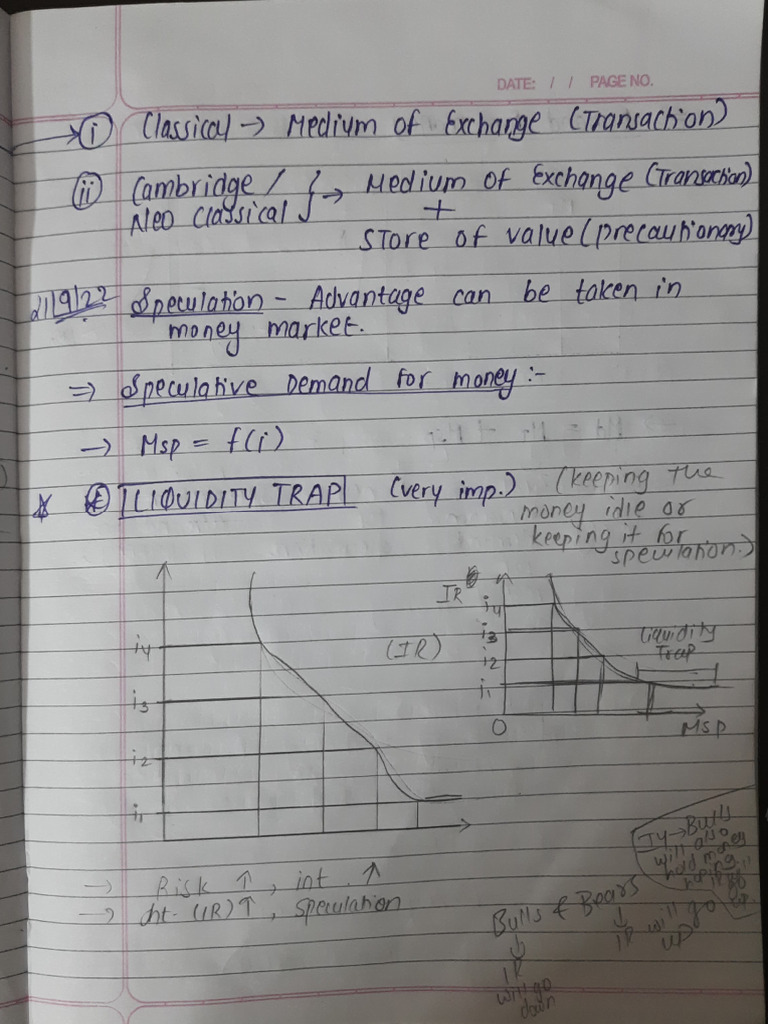 DATE: / / PAGE NO.
→ (i) Classical → Medium of Exchange (Transaction)
(ii) Cambridge / Neo Classical } → Medium of Exchange (Transaction)
+
Store of value (precautionary)
21/9/22 Speculation - Advantage can be taken in
money market.
⇒ Speculative Demand for money :-
→ Msp = f(i)
LIQUIDITY TRAP (very imp.) (keeping the
money idle or
keeping it for
speculation.)
IR
i4
i3
i2
i1
(IR)
i4
i3
i2
i1
Liquidity
Trap
O
Msp
→ Risk ↑, int. ↑
→ int. (IR) ↑, speculation
Bulls & Bears
↓
IR
will go
down
↓
IR will go
up
I4 → Bulls
will also
hold money
hoping
IR will
go
up